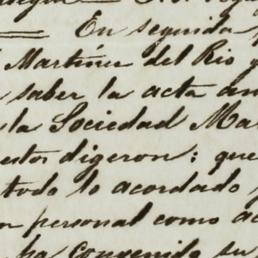 En seguida
Martinez del Rio y
saber la acta an
la Sociedad Ma
estos digeron: que
todo lo acordado
personal como ac
ha convenido su